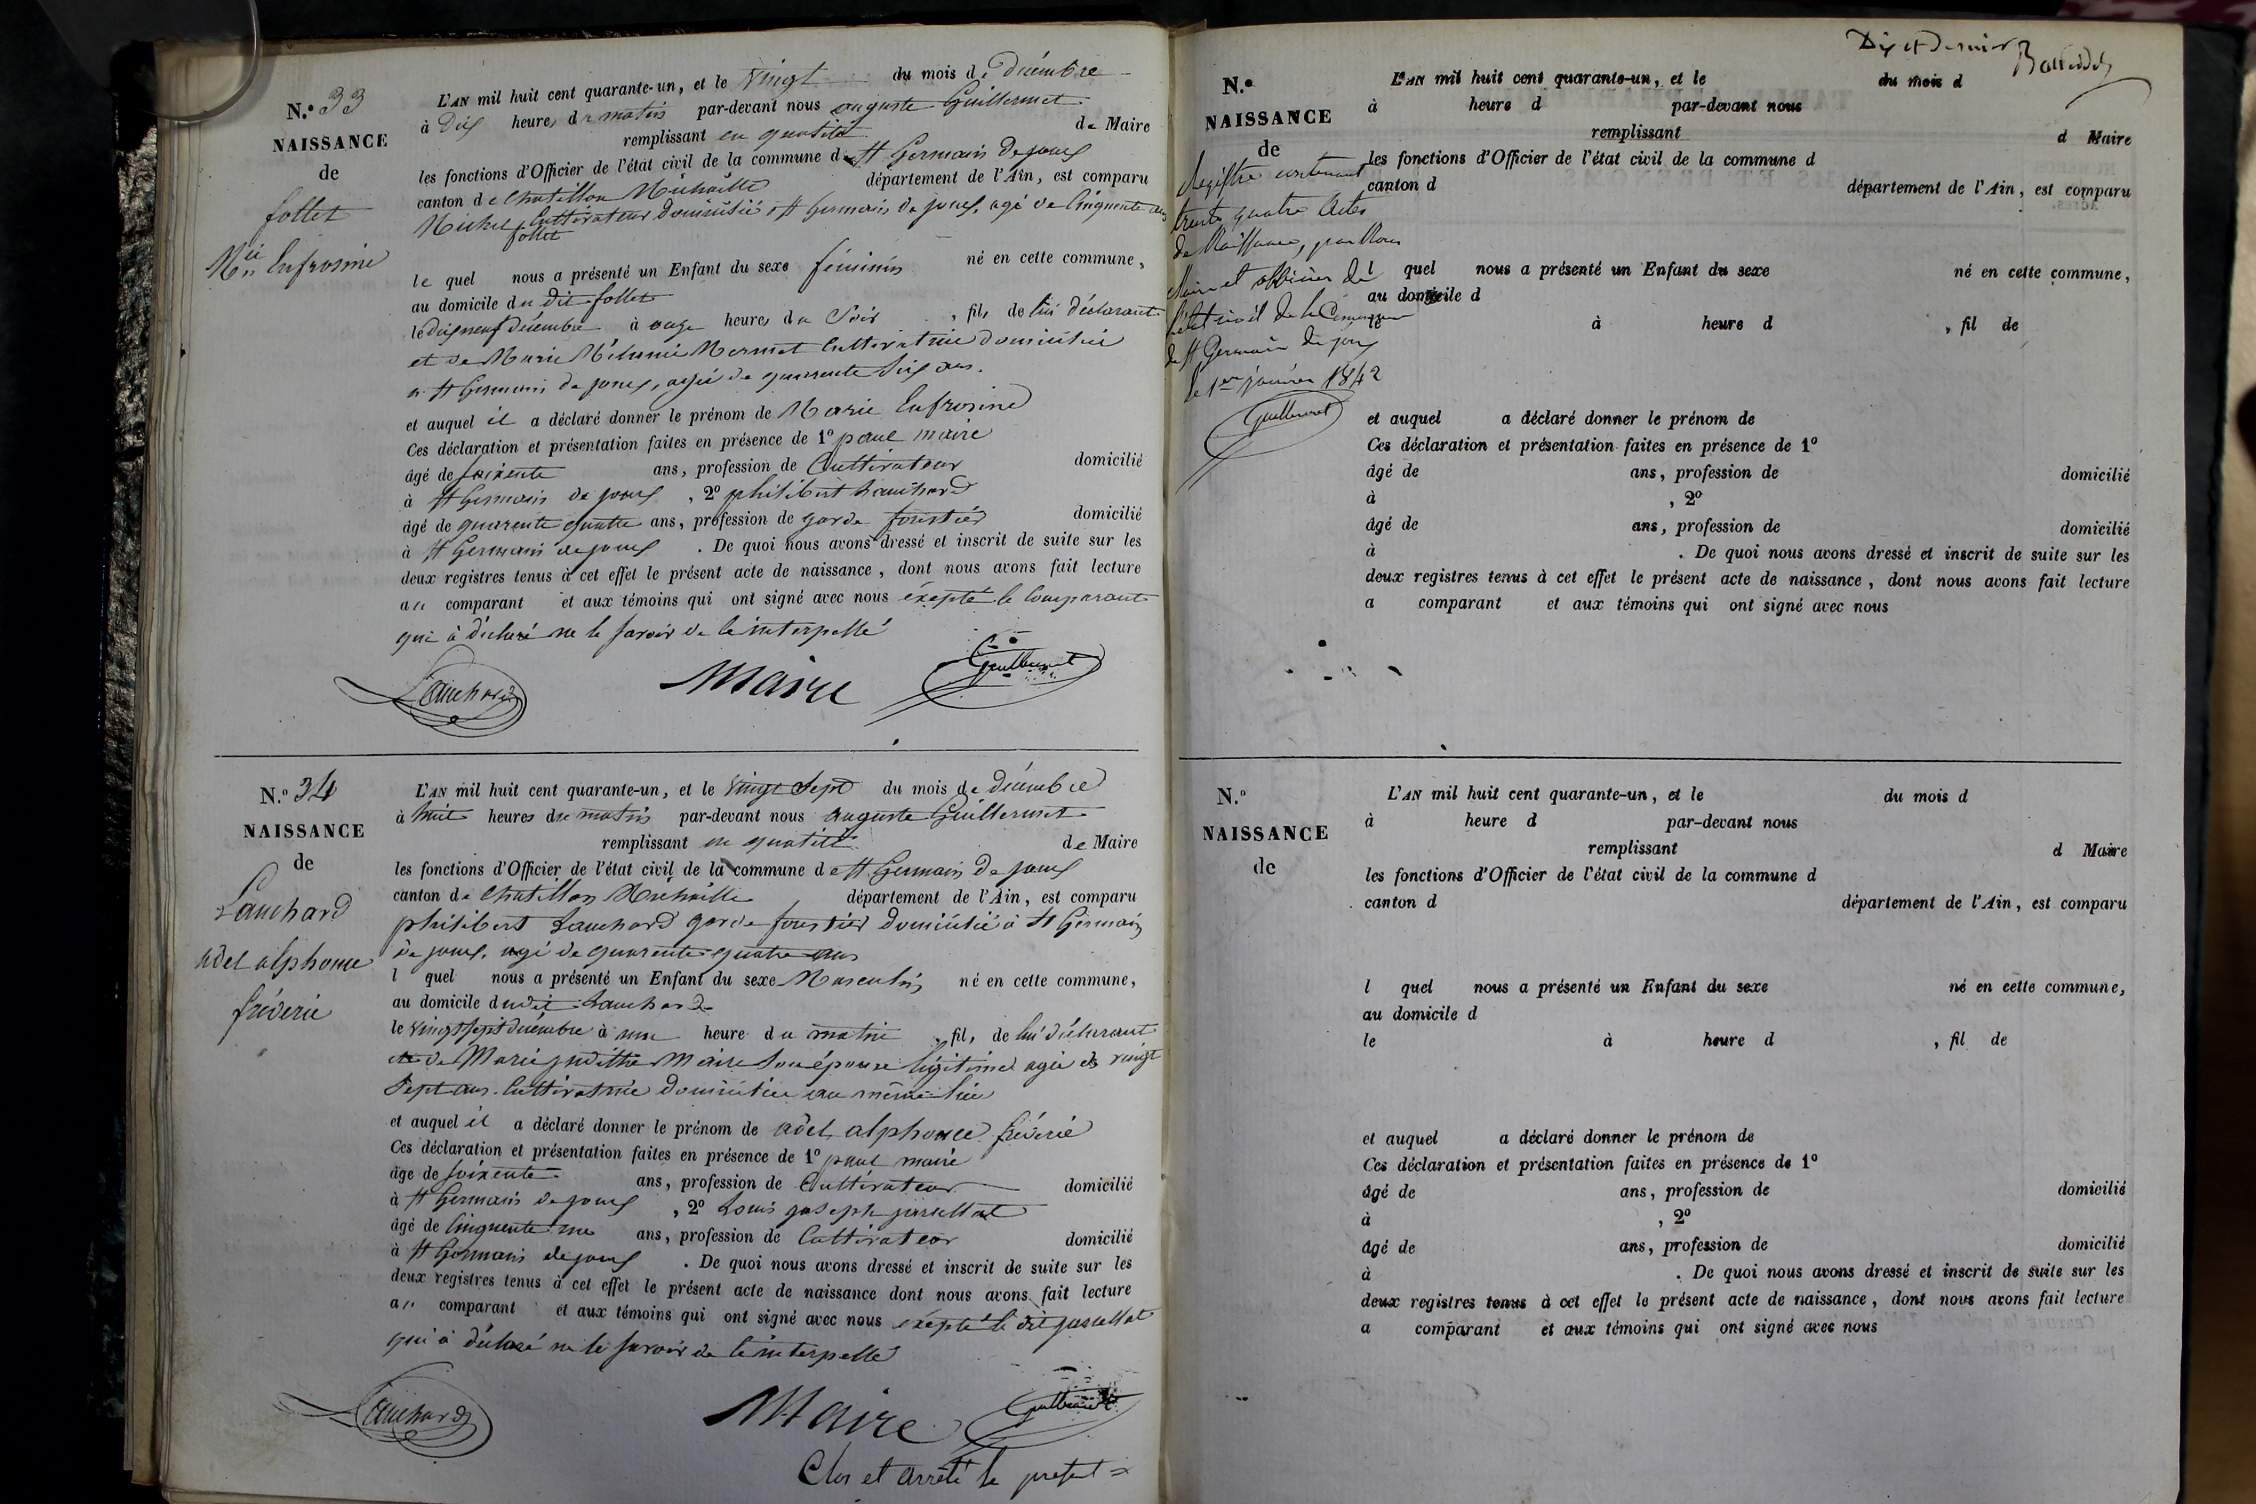 N.° 33
NAISSANCE
de
follet
M.ie Eufrosine
L'AN mil huit cent quarante-un, et le vingt du mois de Décembre
à Dix heures du matin par-devant nous auguste Guillermet
remplissant en qualité de Maire
les fonctions d'Officier de l'état civil de la commune de St Germain de joux
canton de Chatillon Michaille département de l'Ain, est comparu
Michel follet Cultivateur domicilié à St Germain de joux, agé de Cinquante ans
le quel nous a présenté un Enfant du sexe féminin né en cette commune,
au domicile du dit follet
le dix neuf décembre à onze heures du Soir, fils de lui déclarant
et de Marie Mélanie Mermet Cultivatrice domiciliée
à St Germain de joux, agée de quarente Six ans.
et auquel il a déclaré donner le prénom de Marie Eufrosine
Ces déclaration et présentation faites en présence de 1° paul maire
âgé de soixente ans, profession de Cultivateur domicilié
à St Germain de joux, 2° philibert Lauchard
âgé de quarente quatre ans, profession de garde forestier domicilié
à St Germain de joux. De quoi nous avons dressé et inscrit de suite sur les
deux registres tenus à cet effet le présent acte de naissance, dont nous avons fait lecture
au comparant et aux témoins qui ont signé avec nous éxepté le Comparant
qui à déclaré ne le savoir de le interpellé
Lauchard Maire Guillermet
N.° 34
NAISSANCE
de
Lauchard
adel alphonce
fréderic
L'AN mil huit cent quarante-un, et le vingt Sept du mois de Décembre
à huit heures du matin par-devant nous auguste Guillermet
remplissant en qualité de Maire
les fonctions d'Officier de l'état civil de la commune de St Germain de joux
canton de Chatillon Michaille département de l'Ain, est comparu
philibert Lauchard garde forestier domicilié à St Germain
de joux, agé de quarente quatre ans
l quel nous a présenté un Enfant du sexe Masculin né en cette commune,
au domicile dudit Lauchard
le vingt sept décembre à une heure du matin, fils de lui déclarant
et de Marie judithe Maire Son épouse légitime agée de vingt
Sept ans. Cultivatrice domiciliée au même lieu
et auquel il a déclaré donner le prénom de adel alphonce fréderic
Ces déclaration et présentation faites en présence de 1° paul maire
âgé de soixente ans, profession de Cultivateur domicilié
à St Germain de joux, 2° Louis joseph
âgé de Cinquente un ans, profession de Cultivateur domicilié
à St Germain de joux. De quoi nous avons dressé et inscrit de suite sur les
deux registres tenus à cet effet le présent acte de naissance dont nous avons fait lecture
au comparant et aux témoins qui ont signé avec nous éxepté le dit
qui à déclaré ne le savoir de le interpellé
Lauchard Maire Guillermet
Clos et arrêté le présent
Dix et Dernier
N.°
NAISSANCE
de
Registre contenant
trente quatre Actes
de Naissance, par Nous
Maire et officier de
l'état civil de la Commune
de St Germain de joux
le 1er janvier 1842
Guillermet
L'AN mil huit cent quarante-un, et le du mois d
à heure d par-devant nous
remplissant d Maire
les fonctions d'Officier de l'état civil de la commune d
canton d département de l'Ain, est comparu
l quel nous a présenté un Enfant du sexe né en cette commune,
au domicile d
le à heure d, fil de
et auquel a déclaré donner le prénom de
Ces déclaration et présentation faites en présence de 1°
âgé de ans, profession de domicilié
à, 2°
âgé de ans, profession de domicilié
à. De quoi nous avons dressé et inscrit de suite sur les
deux registres tenus à cet effet le présent acte de naissance, dont nous avons fait lecture
a comparant et aux témoins qui ont signé avec nous
N.°
NAISSANCE
de
L'AN mil huit cent quarante-un, et le du mois d
à heure d par-devant nous
remplissant d Maire
les fonctions d'Officier de l'état civil de la commune d
canton d département de l'Ain, est comparu
l quel nous a présenté un Enfant du sexe né en cette commune,
au domicile d
le à heure d, fil de
et auquel a déclaré donner le prénom de
Ces déclaration et présentation faites en présence de 1°
âgé de ans, profession de domicilié
à, 2°
âgé de ans, profession de domicilié
à. De quoi nous avons dressé et inscrit de suite sur les
deux registres tenus à cet effet le présent acte de naissance, dont nous avons fait lecture
a comparant et aux témoins qui ont signé avec nous